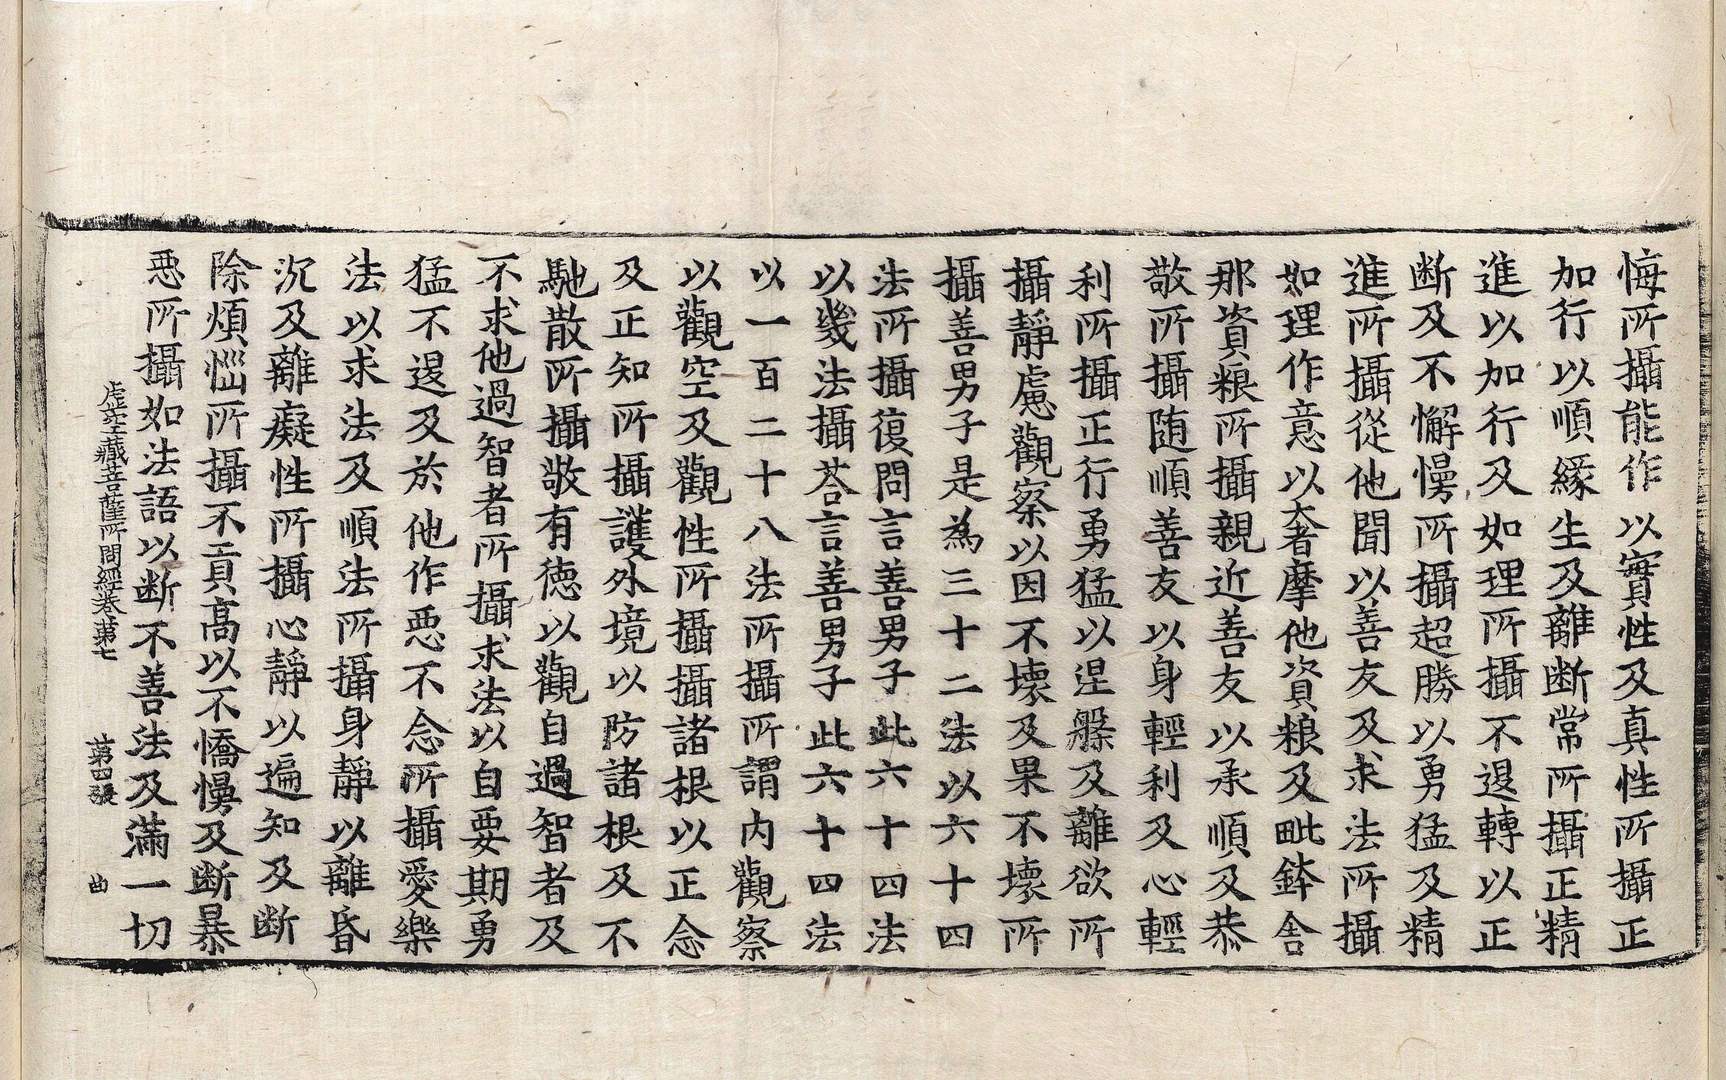 悔所攝能作以實性及真性所攝正
加行以順緣生及離断常所攝正精
進以加行及如理所攝不退轉以正
断及不懈慢所攝超勝以勇猛及精
進所攝從他聞以善友及求法所攝
如理作意以奢摩他資粮及毗鉢舍
那資粮所攝親近善友以承順及恭
敬所攝随順善友以身輕利及心輕
利所攝正行勇猛以涅槃及離欲所
攝靜慮觀察以因不壞及果不壞所
攝善男子是為三十二法以六十四
法所攝復問言善男子此六十四法
以幾法攝荅言善男子此六十四法
以一百二十八法所攝所謂内觀察
以觀空及觀性所攝攝諸根以正念
及正知所攝護外境以防諸根及不
馳散所攝敬有德以觀自過智者及
不求他過智者所攝求法以自要期勇
猛不退及於他作惡不念所攝愛樂
法以求法及順法所攝身靜以離昏
沉及離癡性所攝心靜以遍知及断
除煩惱所攝不貢高以不憍慢及断暴
惡所攝如法語以断不善法及滿一切
虛空藏菩薩所問經卷第七 第四張 曲